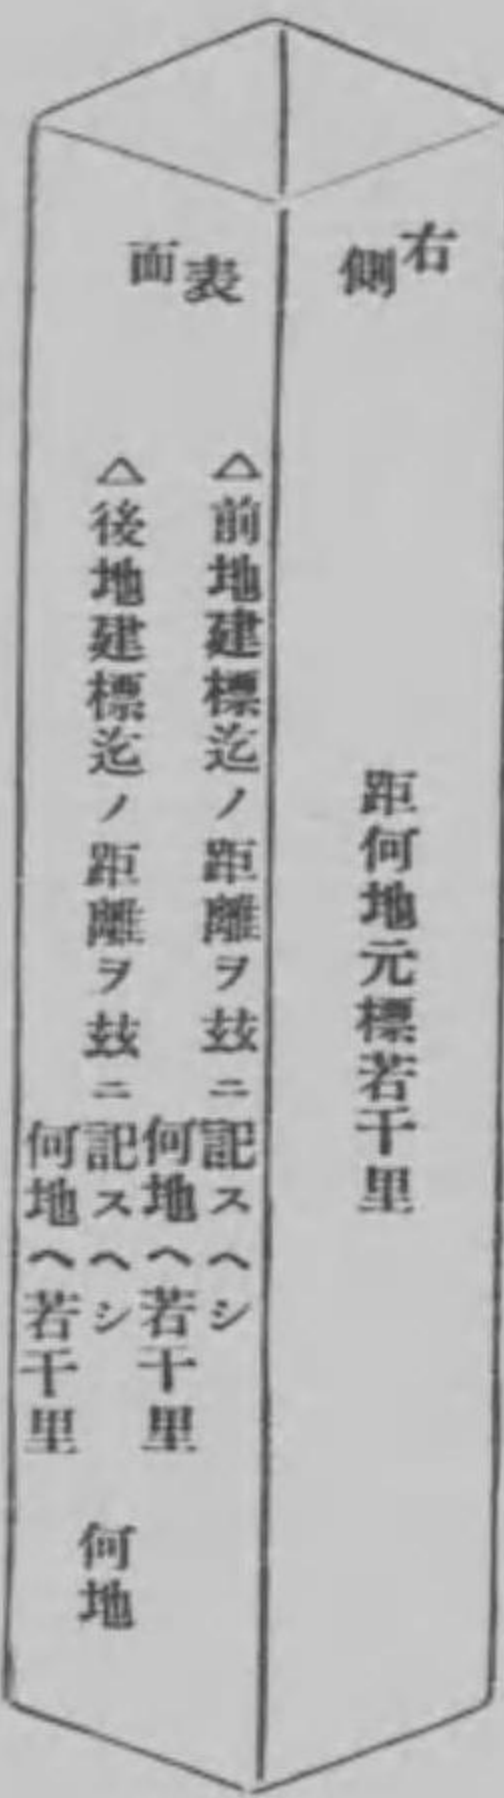 右側
距何地元標若干里
表面
△前地建標迄ノ距離ヲ玆ニ記スヘシ
何地ヘ若干里
△後地建標迄ノ距離ヲ玆ニ記スヘシ
何地ヘ若干里
何地